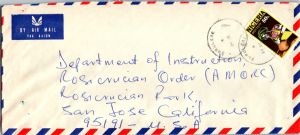 BY AIR MAIL
PAR AVION
NIGERIA
Department of Instruction,
Rosicrucian Order (AMORC)
Rosicrucian Park,
San Jose California
95191 - U.S.A